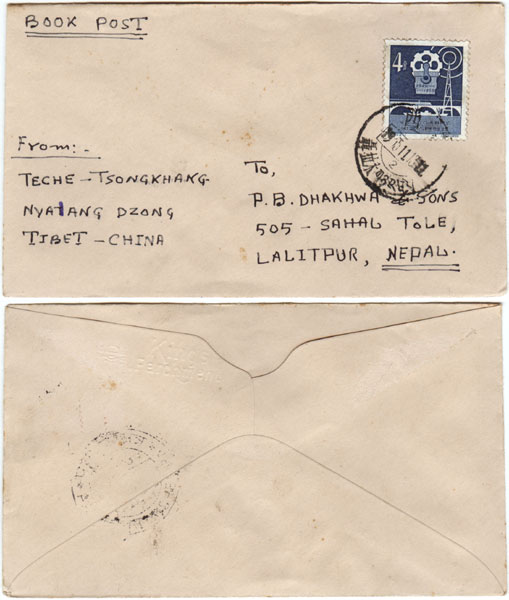 BOOK POST
4
From:-
TECHE - TSONGKHANG
NYALANG DZONG
TIBET - CHINA
To,
P.B. DHAKHWA & SONS
505 - SAHAL TOLE,
LALITPUR, NEPAL.